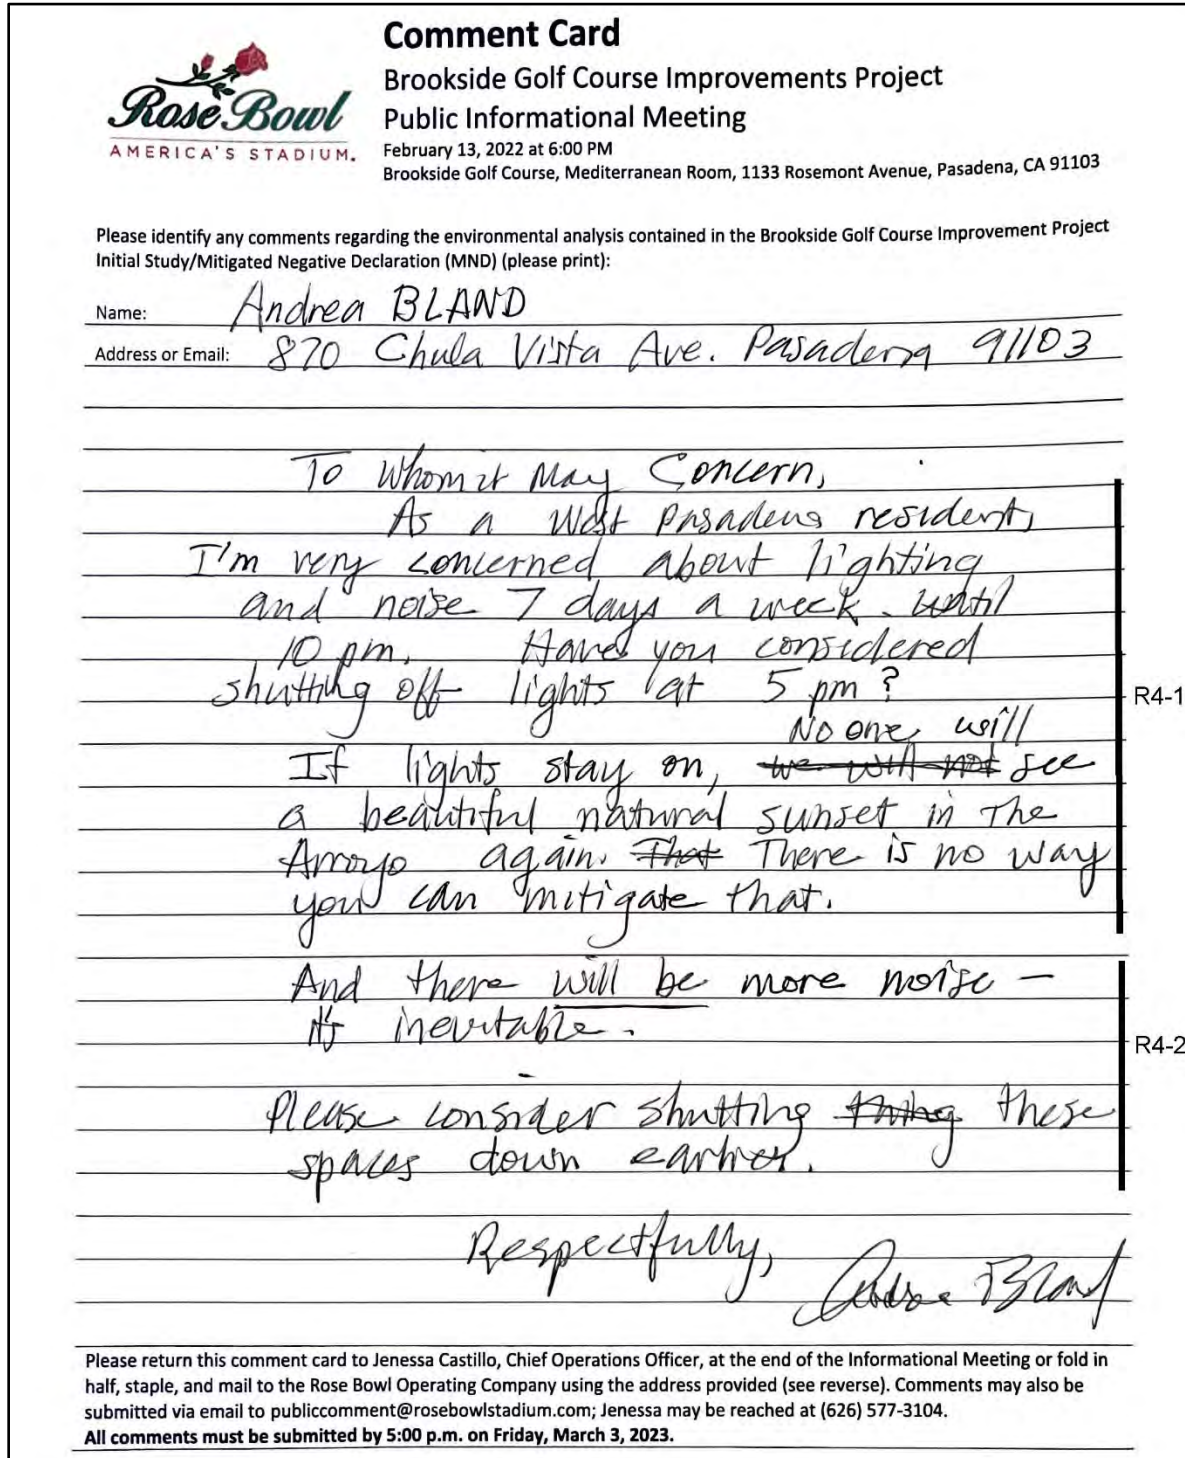 Comment Card
Rose Bowl
AMERICA'S STADIUM.
Brookside Golf Course Improvements Project
Public Informational Meeting
February 13, 2022 at 6:00 PM
Brookside Golf Course, Mediterranean Room, 1133 Rosemont Avenue, Pasadena, CA 91103
Please identify any comments regarding the environmental analysis contained in the Brookside Golf Course Improvement Project
Initial Study/Mitigated Negative Declaration (MND) (please print):
Name: Andrea BLAND
Address or Email: 870 Chula Vista Ave. Pasadena 91103
To Whom it May Concern,
As a West Pasadena resident,
I'm very concerned about lighting
and noise 7 days a week until
10 pm. Have you considered
shutting off lights at 5 pm?
R4-1
No one will
If lights stay on, we will not see
a beautiful natural sunset in The
Arroyo again. That There is no way
you can mitigate that.
And there will be more noise –
it's inevitable.
R4-2
Please consider shutting thing these
spaces down earlier.
Respectfully, Andrea Bland
Please return this comment card to Jenessa Castillo, Chief Operations Officer, at the end of the Informational Meeting or fold in
half, staple, and mail to the Rose Bowl Operating Company using the address provided (see reverse). Comments may also be
submitted via email to publiccomment@rosebowlstadium.com; Jenessa may be reached at (626) 577-3104.
All comments must be submitted by 5:00 p.m. on Friday, March 3, 2023.